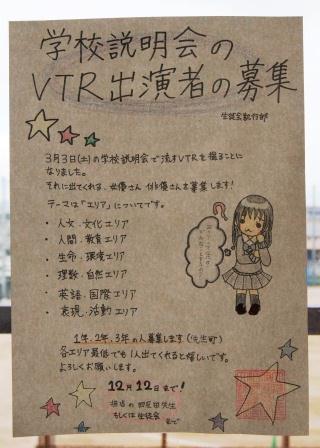 学校説明会の
VTR出演者の募集
生徒会執行部
3月3日(土)の学校説明会で流すVTRを撮ることに
なりました。
それに出てくれる、女優さん 俳優さんを募集します!
テーマは「エリア」についてです。
・人文・文化エリア
・人間・教育エリア
・生命・環境エリア
・理数・自然エリア
・英語・国際エリア
・表現・活動エリア
1年、2年、3年の人募集します(先生可)
各エリア最低でも1人出てくれると嬉しいです。
よろしくお願いします。
12月12日まで!
担当の 先生
もしくは生徒会 まで